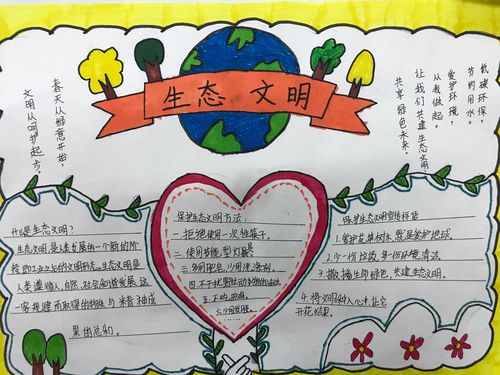 生态 文明
春天从绿意开始，
文明从呵护起步。
低碳环保，
节约用水。
爱护环境，
从我做起。
让我们共建生态文明，
共享绿色未来。
什么是生态文明？
生态文明，是人类发展的一个新的阶
段即工业文明之后的文明形态。生态文明是
人类遵循人、自然、社会和谐发展这
一客观规律而取得的物质与精神成
果总和。
保护生态文明方法：
一、拒绝使用一次性筷子。
二、使用节能型灯具。
三、多用肥皂，少用洗涤剂。
保护生态文明宣传标语
1.爱护花草树木，就是爱护地球。
2.少一份垃圾，多一份环境清洁。
3.撒播生命绿色，共建生态文明。
4.将文明种入心中，让它
开花结果。